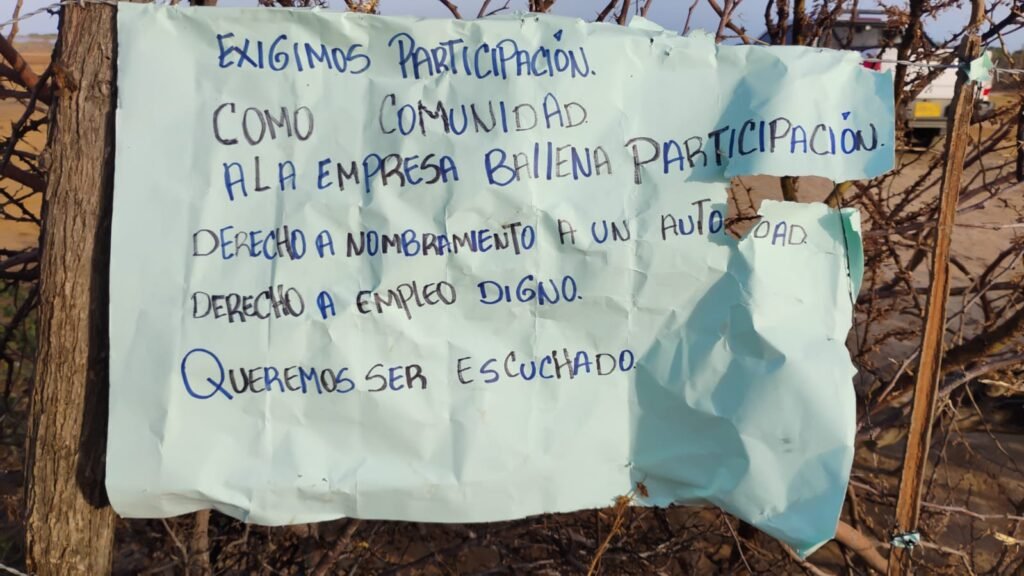 EXIGIMOS PARTICIPACIÓN.
COMO COMUNIDAD
A LA EMPRESA BALLENA PARTICIPACIÓN.
DERECHO A NOMBRAMIENTO A UN
DERECHO A EMPLEO DIGNO.
QUEREMOS SER ESCUCHADO.